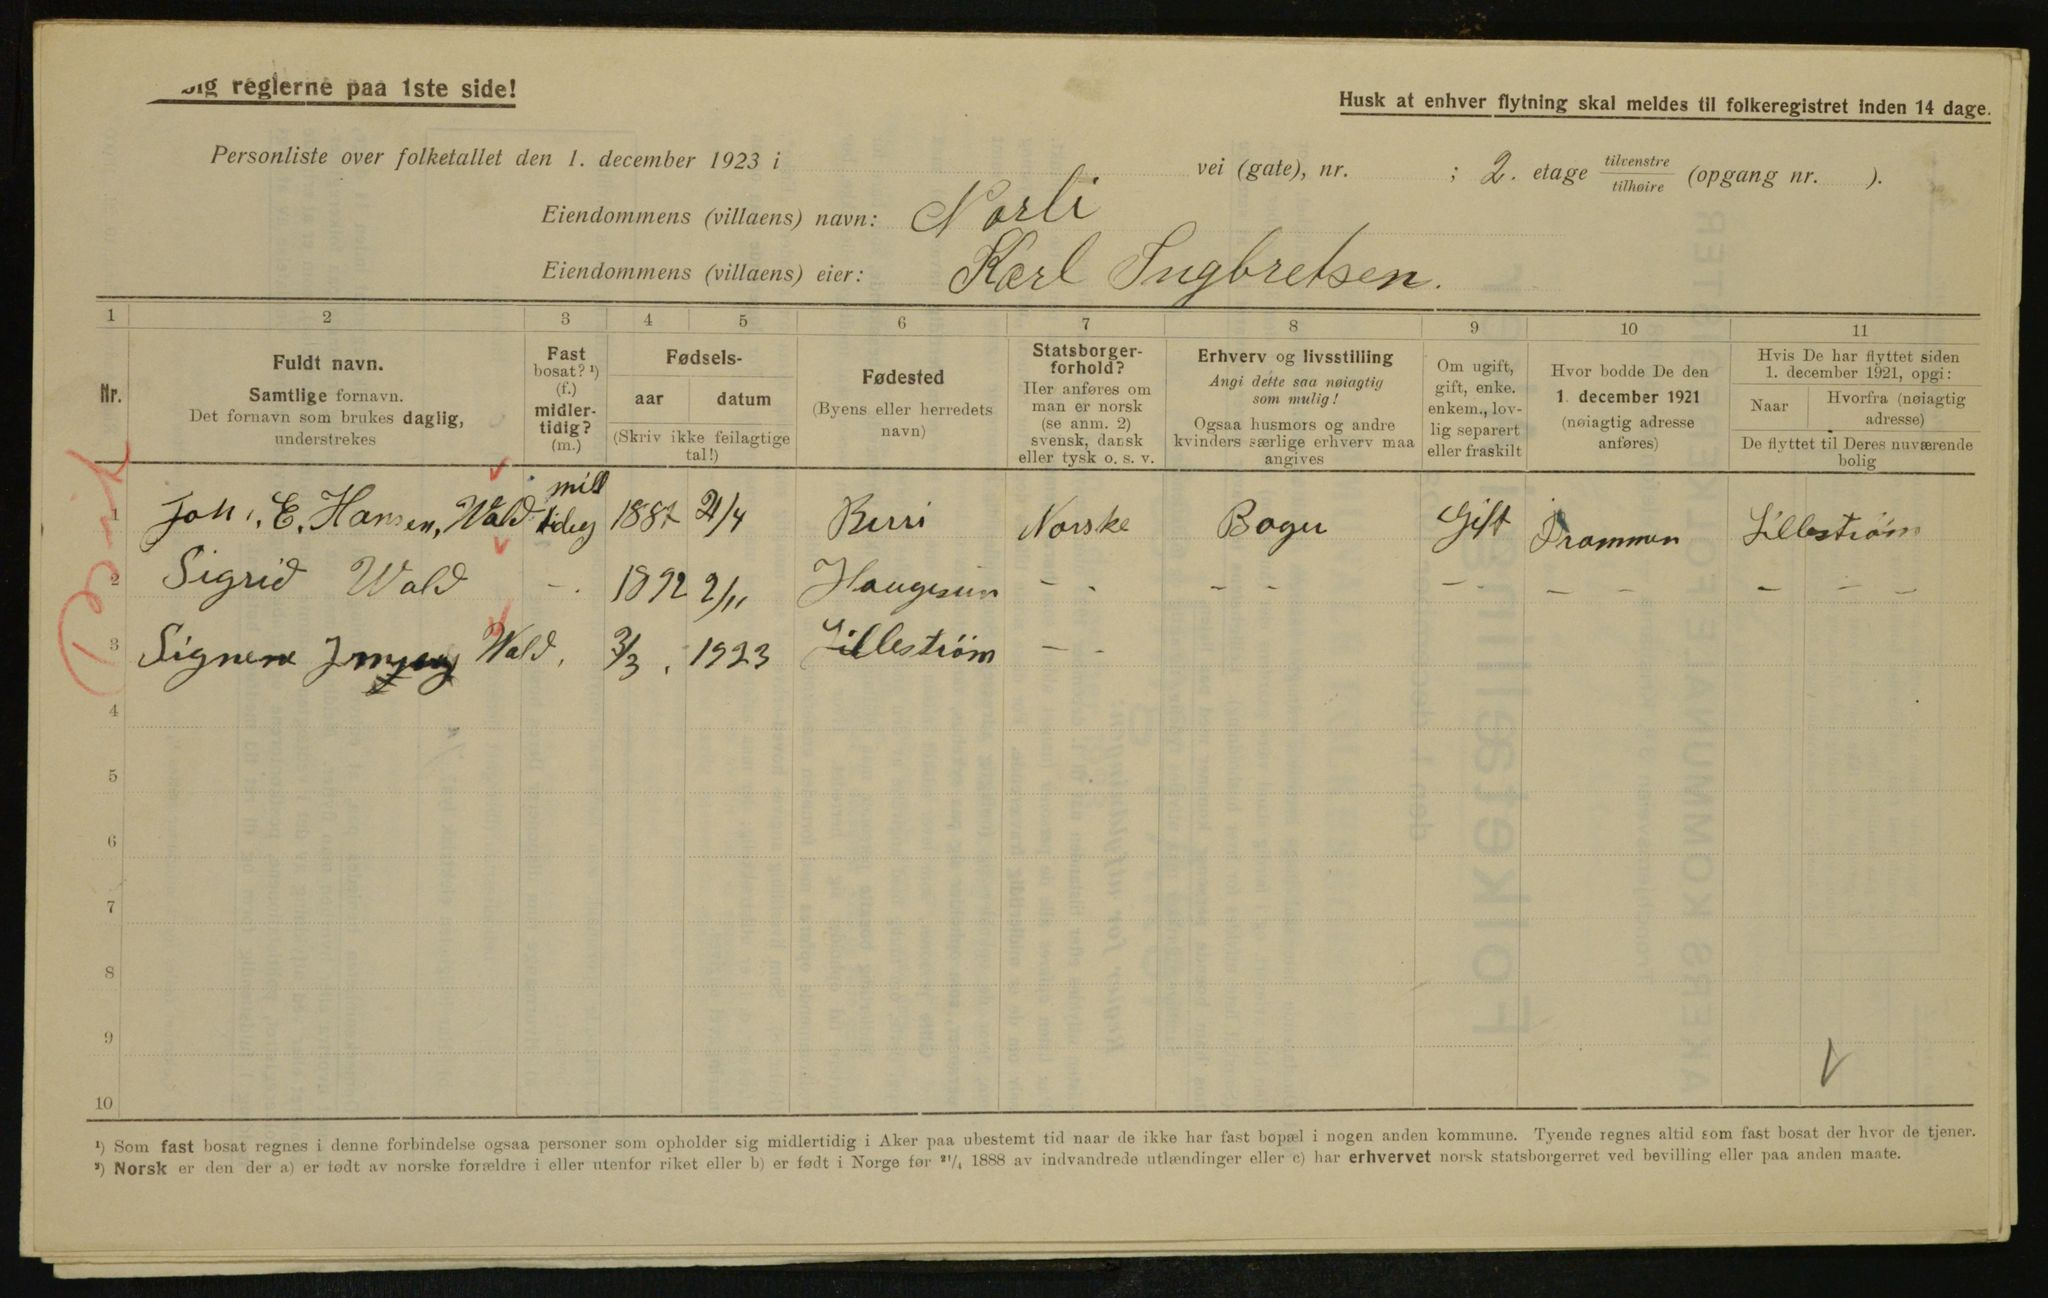 reglerne paa 1ste side!
Husk at enhver flytning skal meldes til folkeregistret inden 14 dage.
Personliste over folketallet den 1. december 1923 i vei (gate), nr. ; 2. etage tilvenstre/tilhøire (opgang nr. ).
Eiendommens (villaens) navn: Norli
Eiendommens (villaens) eier: Karl Ingbretsen.
1 2 3 4 5 6 7 8 9 10 11
Nr.
Fuldt navn.
Samtlige fornavn.
Det fornavn som brukes daglig,
understrekes
Fast
bosat? ¹)
(f.)
midler-
tidig?
(m.)
Fødsels-
aar datum
(Skriv ikke feilagtige
tal!)
Fødested
(Byens eller herredets
navn)
Statsborger-
forhold?
Her anføres om
man er norsk
(se anm. 2)
svensk, dansk
eller tysk o. s. v.
Erhverv og livsstilling
Angi dette saa nøiagtig
som mulig!
Ogsaa husmors og andre
kvinders særlige erhverv maa
angives
Om ugift,
gift, enke.
enkem., lov-
lig separert
eller fraskilt
Hvor bodde De den
1. december 1921
(nøiagtig adresse
anføres)
Hvis De har flyttet siden
1. december 1921, opgi:
Naar
Hvorfra (nøiagtig
adresse)
De flyttet til Deres nuværende
bolig
1 Joh. E. Hansen, Wald 1887 21/4 Birri Norske Gift Drammen Lillestrøm
2 Sigrid Wald - 1892 2/11 Haugesun - - - - - - - - - - -
3 Signene Wald, 3/3. 1923 Lillestrøm - -
4
5
6
7
8
9
10
¹) Som fast bosat regnes i denne forbindelse ogsaa personer som opholder sig midlertidig i Aker paa ubestemt tid naar de ikke har fast bopæl i nogen anden kommune. Tyende regnes altid som fast bosat der hvor de tjener.
²) Norsk er den der a) er født av norske forældre i eller utenfor riket eller b) er født i Norge før 21/4 1888 av indvandrede utlændinger eller c) har erhvervet norsk statsborgerret ved bevilling eller paa anden maate.